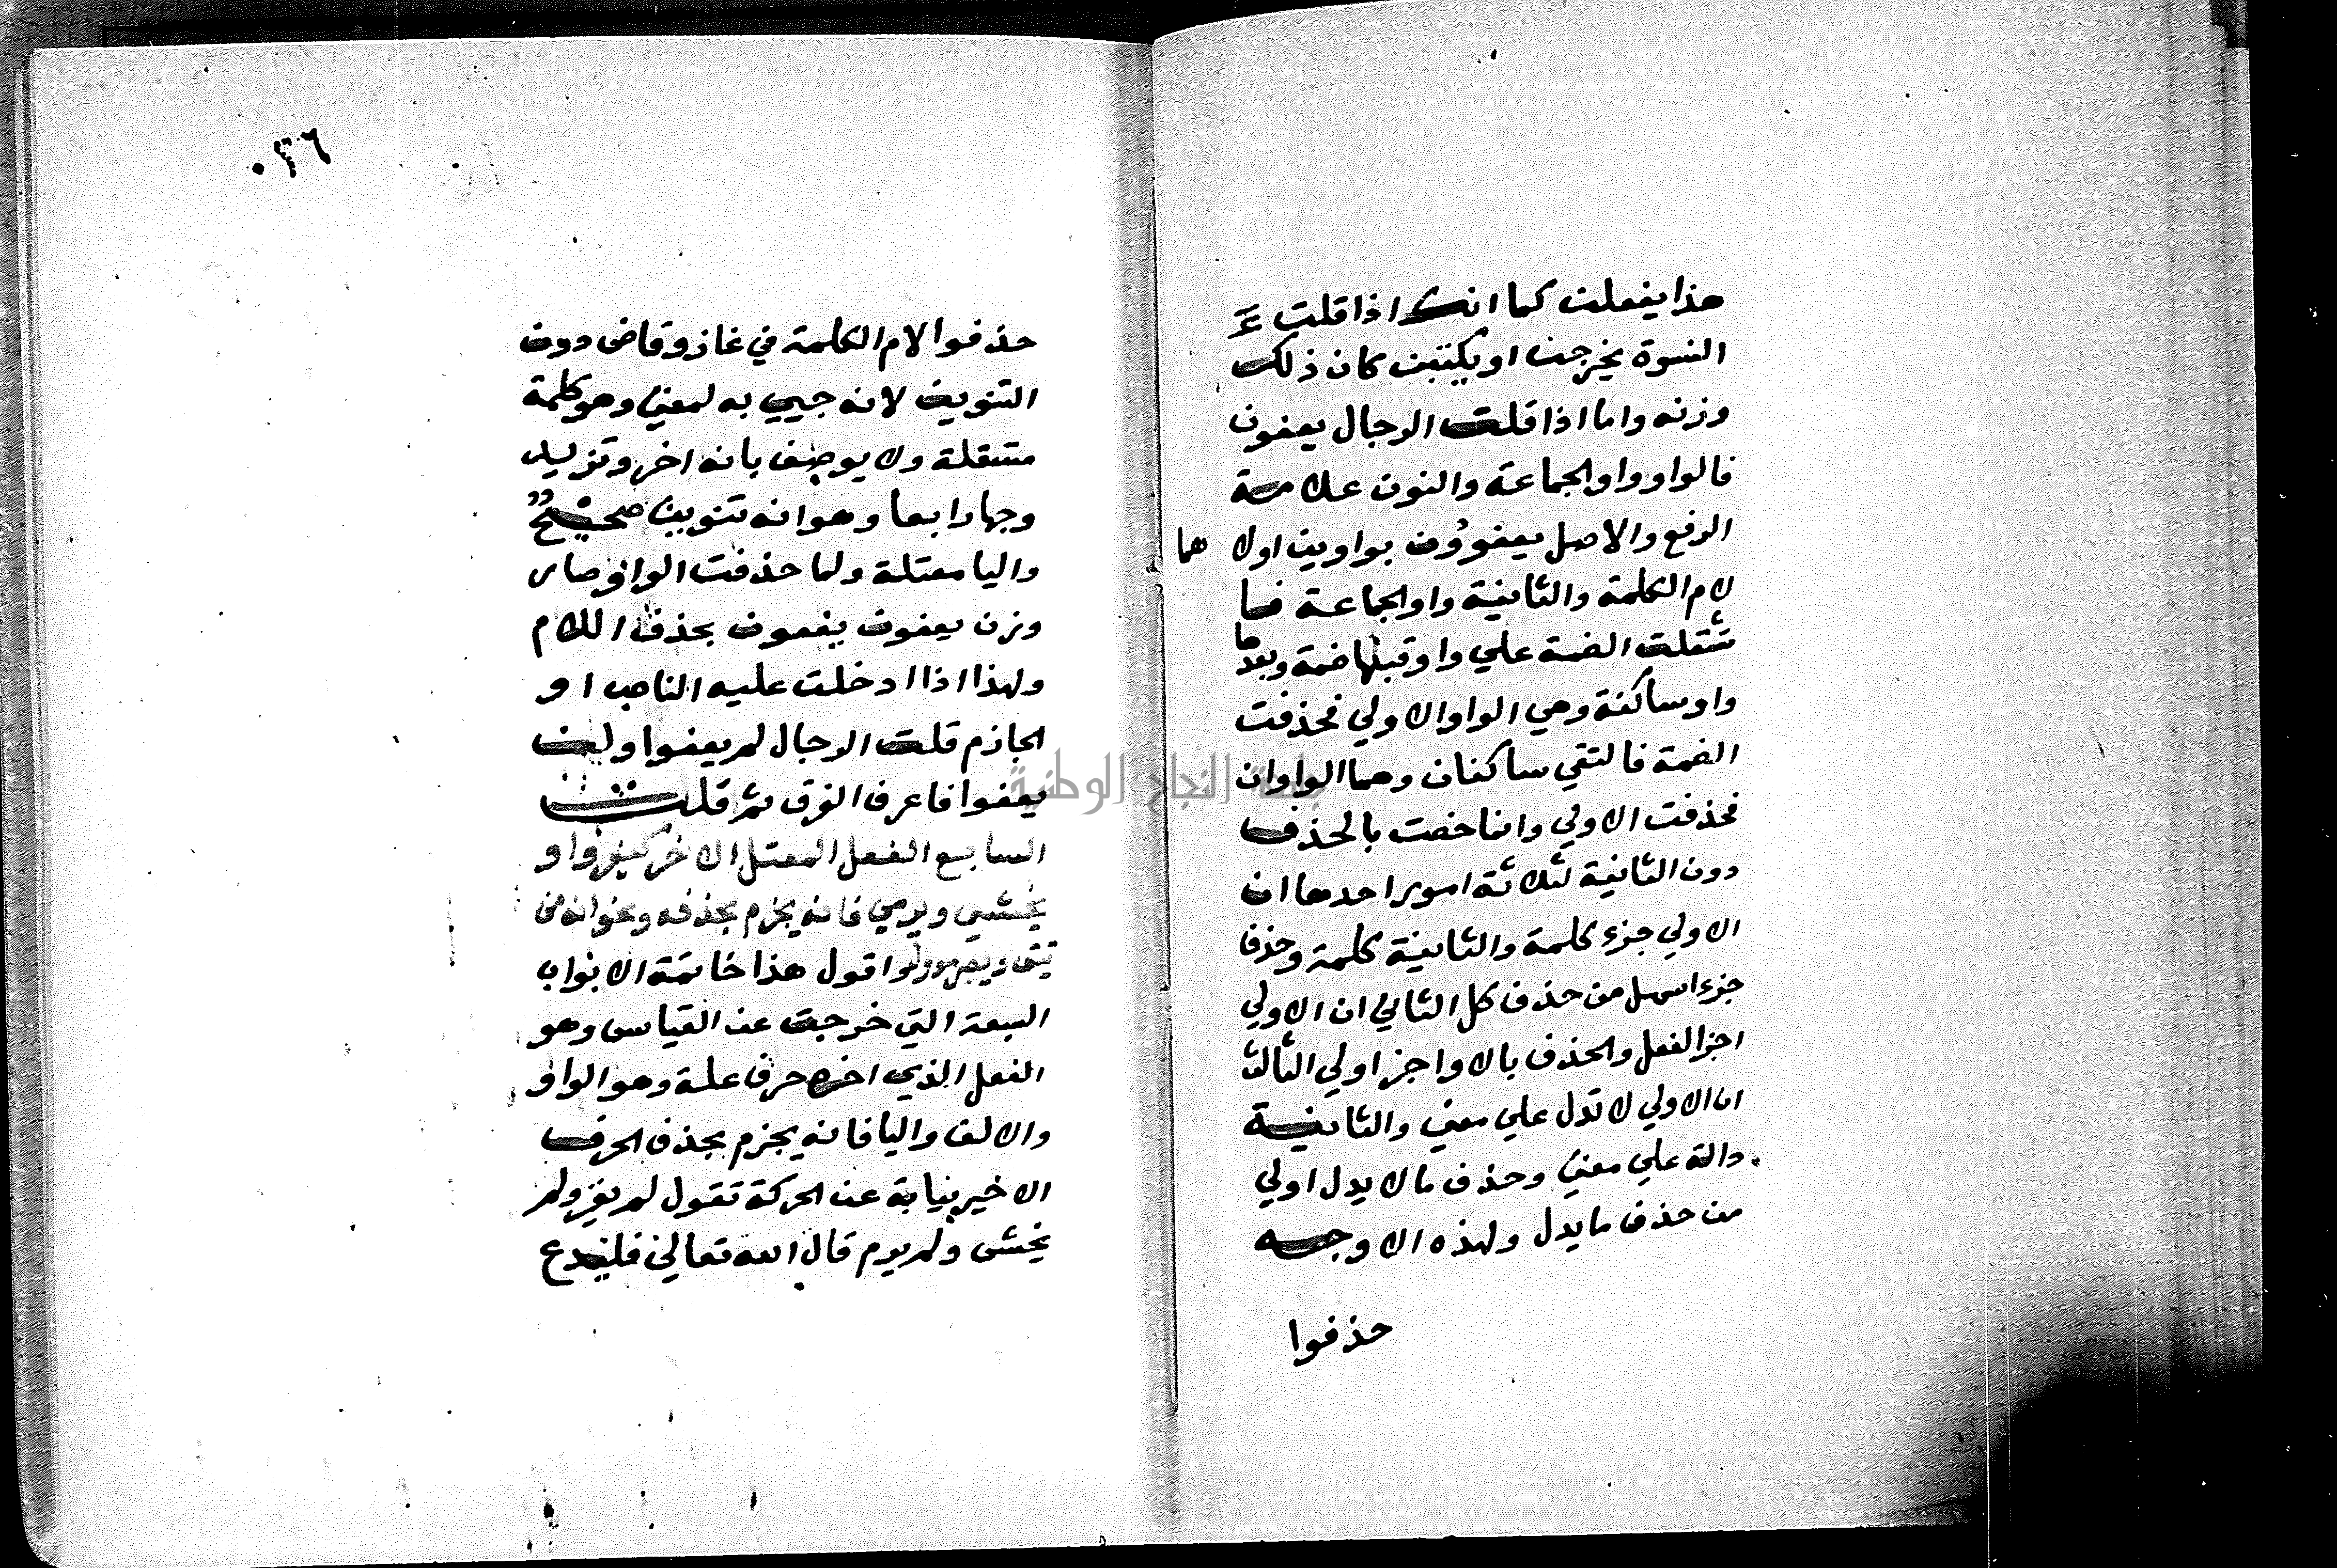 هذا يفعلن كما انك اذا قلت
النسوة يخرجن او يكتبن كان ذلك
وزنه واما اذا قلت الرجال يعفون
فالواو واو الجماعة والنون علامة
الرفع والاصل يعفوون بواوين اولا هما
لام الكلمة والثانية واو الجماعة فا
ستثقلت الضمة علي واو قبلها ضمة وبعدها
واو ساكنة وهي الواو الاولي فحذفت
الضمة فالتقي ساكنان وهما الواوان
فحذفت الاولي وانما خصت بالحذف
دون الثانية لثلاثة امور احدها ان
الاولي جزء كلمة والثانية كلمة وحذف
جزء اسهل من حذف كل الثاني ان الاولي
اخر الفعل والحذف بالاواخر اولي الثالث
ان الاولي لا تدل علي معني والثانية
دالة علي معني وحذف ما لا يدل اولي
من حذف ما يدل ولهذه الاوجه
حذفوا
٠٣٦
حذفوا لام الكلمة في غاز وقاض دون
التنوين لانه جيي به لمعني وهو كلمة
مستقلة ولا يوصف بانه اخر وتزيد
وجها رابعا وهو انه تنوين صحيح
واليا معتلة ولما حذفت الواو صار
وزن يعفون يفعون بحذف اللام
ولهذا اذا ادخلت عليه الناصب او
الجازم قلت الرجال لم يعفوا ولن
يعفوا فاعرف الفرق ثم قلت
السابع الفعل المعتل الاخر كيغزوا و
يخشي ويرمي فانه يجزم بحذفه ونحو انه من
يتق ويصبر مؤول واقول هذا خاتمة الابواب
السبعة التي خرجت عن القياس وهو
الفعل الذي اخره حرف علة وهو الواو
والالف واليا فانه يجزم بحذف الحرف
الاخير نيابة عن الحركة تقول لم يغز ولم
يخش ولم يرم قال الله تعالي فليدع
جامعة النجاح الوطنية